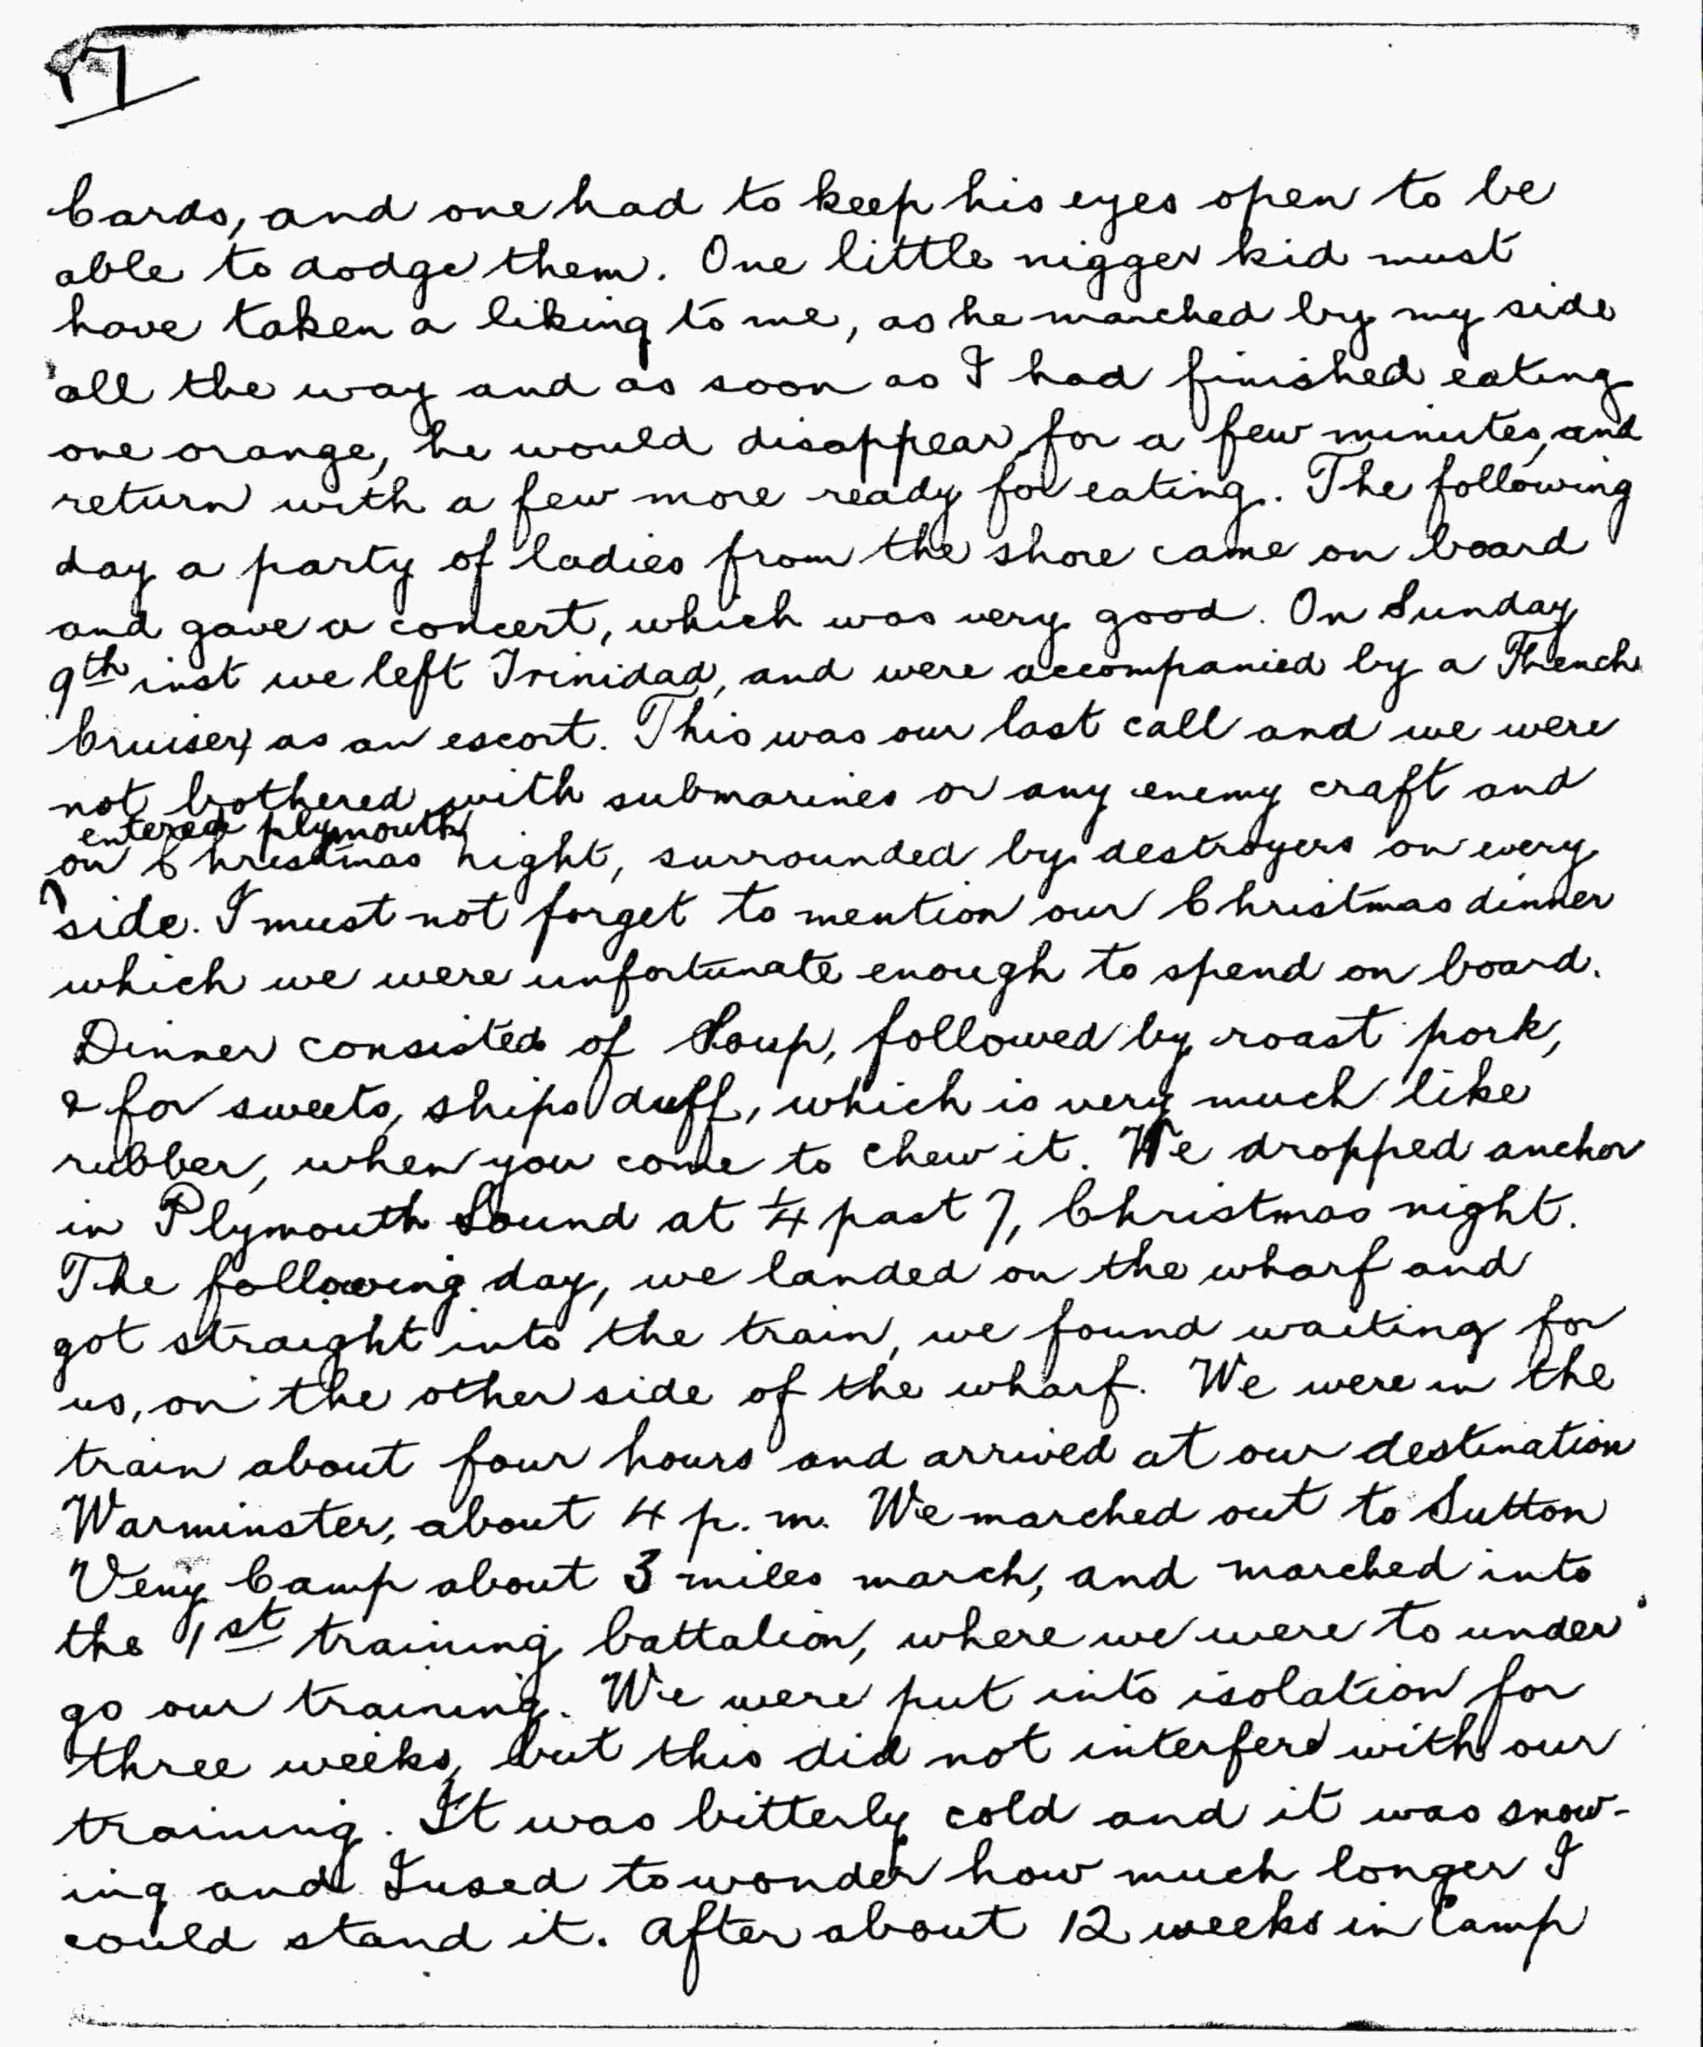 17
Cards, and one had to keep his eyes open to be
able to dodge them. One little nigger kid must
have taken a liking to me, as he marched by my side
all the way and as soon as I had finished eating
one orange, he would disappear for a few minutes, and
return with a few more ready for eating. The following
day a party of ladies from the shore came on board
and gave a concert, which was very good. On Sunday
9th inst we left Trinidad, and were accompanied by a French
Cruiser, as an escort. This was our last call and we were
not bothered with submarines or any enemy craft and
entered plymouth
on Christmas night, surrounded by destroyers on every
side. I must not forget to mention our Christmas dinner
which we were unfortunate enough to spend on board.
Dinner consisted of Soup, followed by roast pork,
& for sweets, ships duff, which is very much like
rubber, when you come to chew it. We dropped anchor
in Plymouth Sound at 1/4 past 7, Christmas night.
The following day, we landed on the wharf and
got straight into the train, we found waiting for
us, on the other side of the wharf. We were in the
train about four hours and arrived at our destination
Warminster, about 4 p.m. We marched out to Sutton
Veny Camp about 3 miles march, and marched into
the 1st training battalion, where we were to under
go our training. We were put into isolation for
three weeks, but this did not interfere with our
training. It was bitterly cold and it was snow-
ing and I used to wonder how much longer I
could stand it. After about 12 weeks in Camp